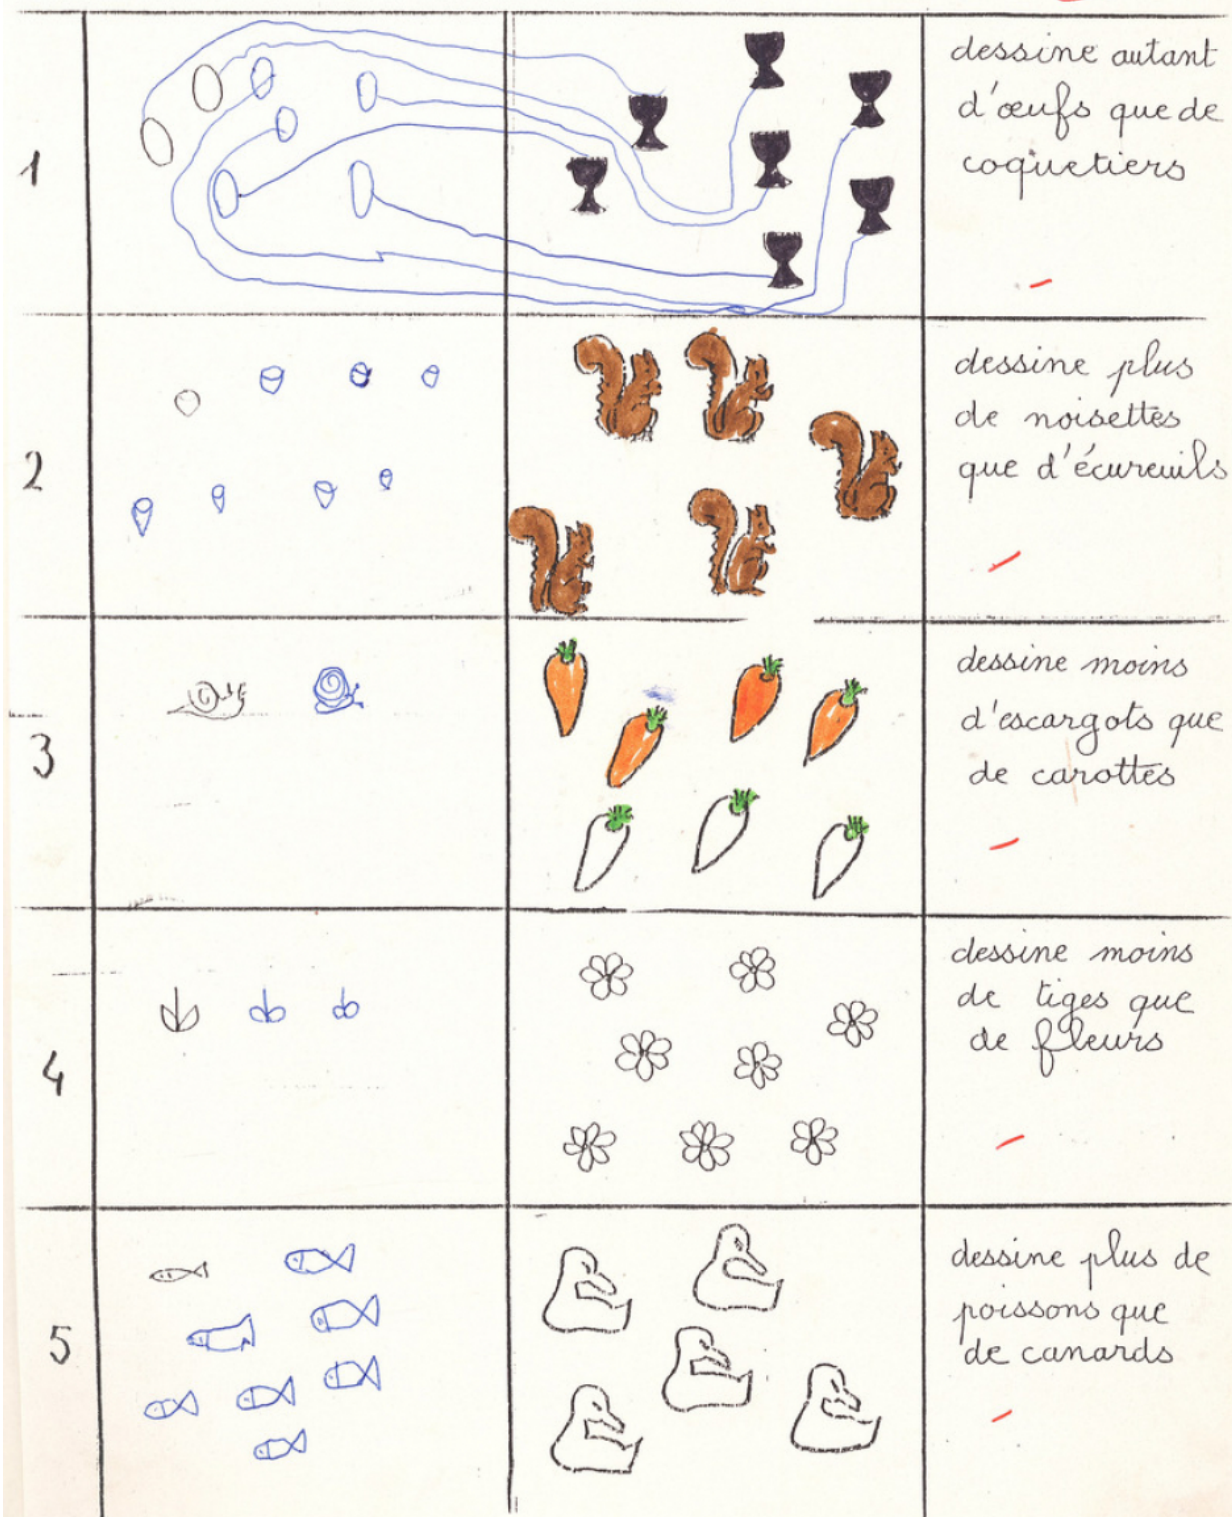 1
dessine autant
d'œufs que de
coquetiers
2
dessine plus
de noisettes
que d'écureuils
3
dessine moins
d'escargots que
de carottes
4
dessine moins
de tiges que
de fleurs
5
dessine plus de
poissons que
de canards